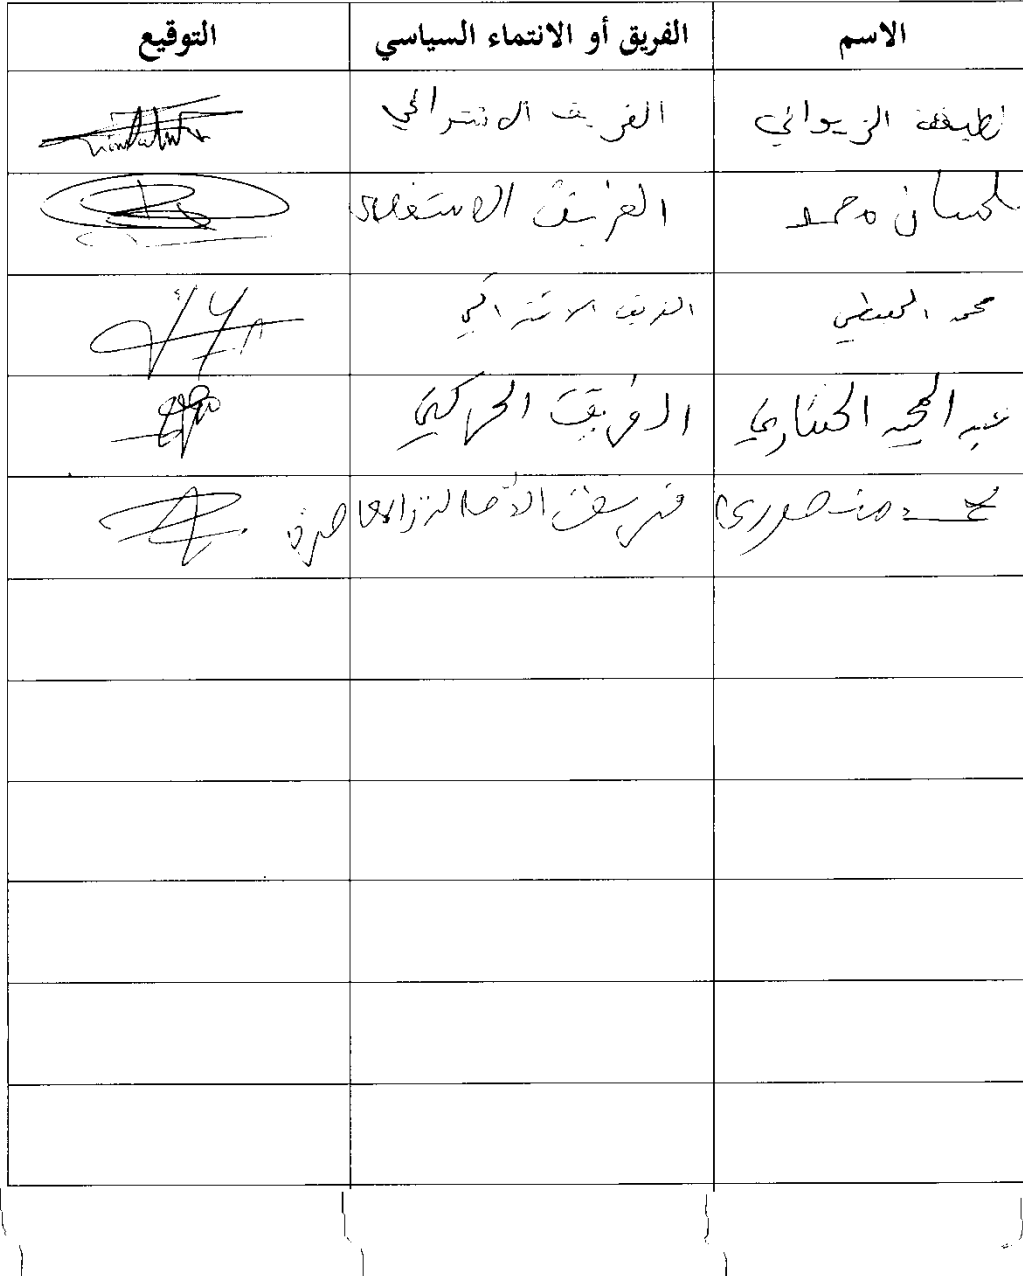 الاسم الفريق أو الانتماء السياسي التوقيع
لطيفة الزيواني الفريق الاشتراكي
بلحسان محمد الفريق الاستقلالي
محمد الفريق الاشتراكي
عبد المجيد الحنكاري الفريق الحركي
محمد منصوري فريق الأصالة والمعاصرة